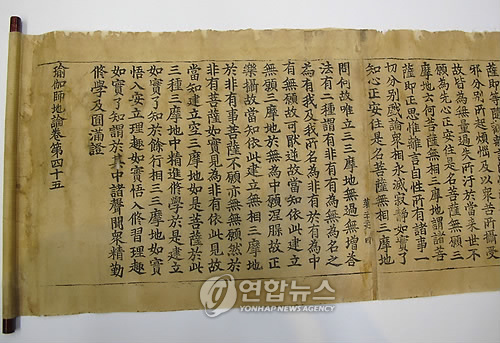 邪分別所起煩惱及以衆苦所攝受
故皆為無量過失所汙於當來世不
願為先心正安住是名菩薩無願三
摩地云何菩薩無相三摩地謂諸菩
薩即正思惟離言自性所有諸事一
切分別戲論衆相永滅寂靜如實了
知心正安住是名菩薩無相三摩地
問何故唯立三三摩地無過無增荅
法有二種謂有非有有為無為名之
為有我及我所名為非有於有為中
有無願故可猒逆故當知依此建立
無願三摩地於無為中願涅槃故正
樂攝故當知依此建立無相三摩地
於非有事菩薩不願亦無無願然於
非有菩薩如實見為非有依此見故
當知建立空三摩地如是菩薩於此
三種三摩地中精進修學於是建立
如實了知於餘行相三三摩地如實
悟入安立理趣如實悟入修習理趣
如實了知謂於其中諸聲聞衆精勤
修學及圓滿證
瑜伽師地論卷第四十五
연합뉴스
YONHAP NEWS AGENCY